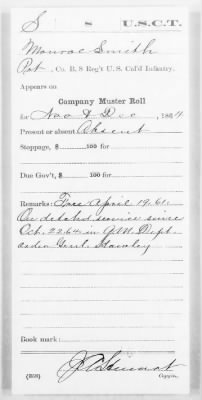 S 8 U.S.C.T.
Monroe Smith
Pvt., Co. B, 8 Reg't U. S. Col'd Infantry.
Appears on
Company Muster Roll
for Nov & Dec, 1864.
Present or absent Absent
Stoppage, $ 100 for
Due Gov't, $ 100 for
Remarks: Free April 19. 61.
On detached service since
Oct. 22. 64 in Q.M. Dept.
order Genl. Hawley
Book mark:
(358) Copyist.